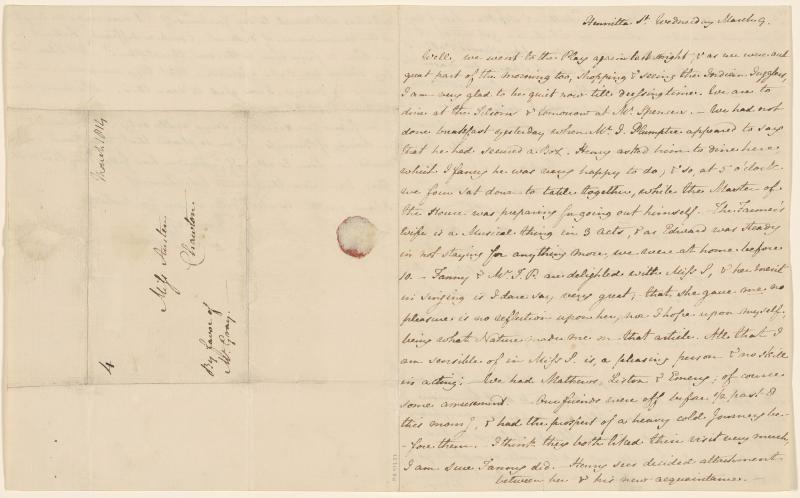 March 1814
Miss Austen
Chawton
By favor of
Mr Gray.
4
Henrietta St. Wednesday March 9.
Well, we went to the Play again last night, & as we were out
great part of the morning too, shopping & seeing the Indian Jugglers,
I am very glad to be quiet now till dressing time. We are to
dine at the Tilsons & tomorrow at Mr Spencers. - We had not
done breakfast yesterday when Mr J. Plumptre appeared to say
that he had secured a Box. Henry asked him to dine here,
which I fancy he was very happy to do; & so, at 5 o'clock
we four sat down to table together, while the Master of
the House was preparing for going out himself. - The Farmer's
Wife is a Musical thing in 3 Acts, & as Edward was steady
in not staying for anything more, we were at home before
10. - Fanny & Mr J. P. are delighted with Miss S, & her merit
in singing is I dare say very great; that she gave me no
pleasure is no reflection upon her, nor I hope upon myself,
being what Nature made me on that article. All that I
am sensible of in Miss S. is, a pleasing person & no skill
in acting. We had Mathews, Liston & Emery; of course
some amusement. - Our friends were off before 1/2 past 8
this morng, & had the prospect of a heavy cold Journey be-
-fore them. - I think they both liked their visit very much,
I am sure Fanny did. - Henry sees decided attachment
between her & his new acquaintance. -